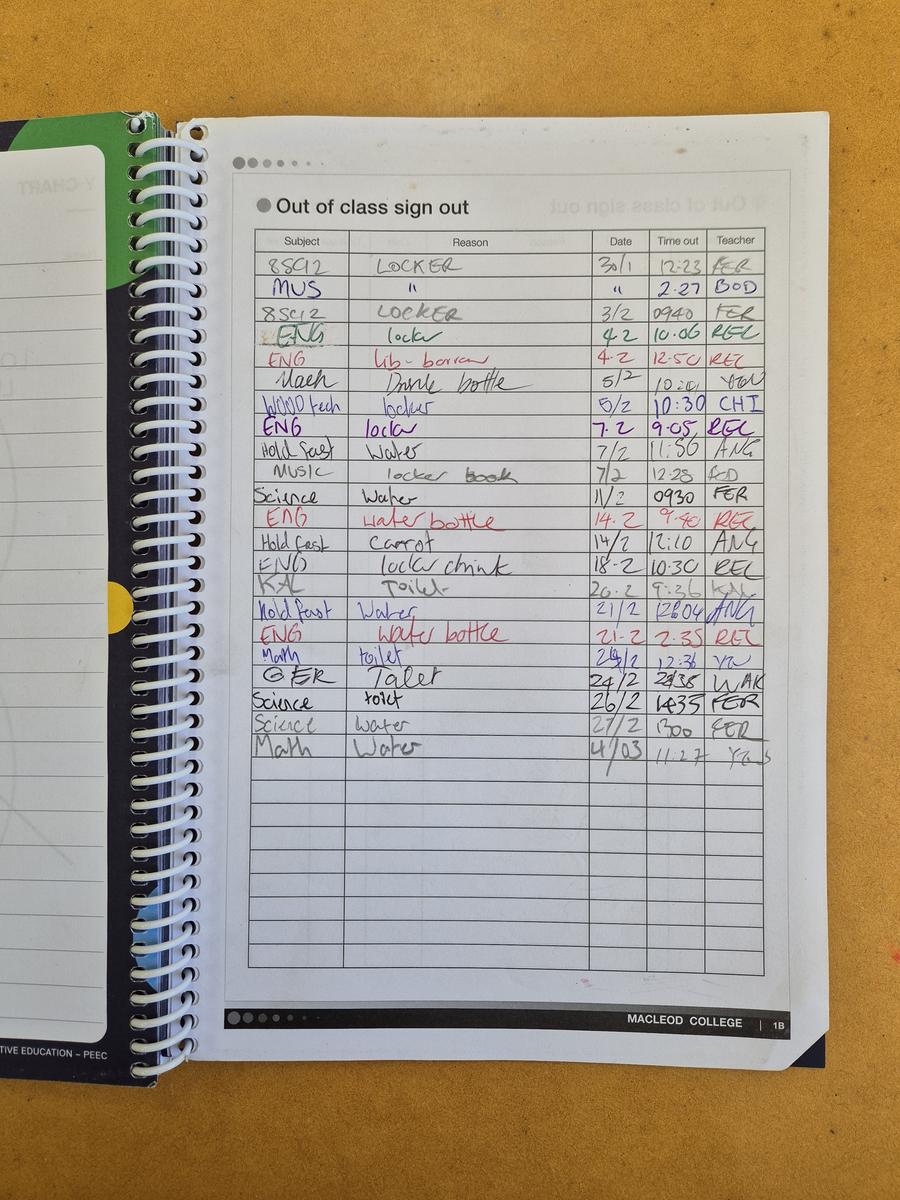 Out of class sign out
Subject Reason Date Time out Teacher
8SC12 LOCKER 30/1 12:23 FER
MUS " " 2.27 BOD
8SC12 LOCKER 3/2 0940 FER
ENG locker 4.2 10.06 REL
ENG lib-borrow 4.2 12.50 REL
Math Drink bottle 5/2
WOOD tech locker 5/2 10:30 CHI
ENG locker 7.2 9.05 REL
Hold fast Water 7/2 11:50 ANG
MUSIC locker book 7/2 12:28
Science Water 11/2 0930 FER
ENG water bottle 14.2 9.40 REL
Hold fast Carrot 14/2 12:10 ANG
ENG locker drink 18-2 10:30 REL
KAL Toilet 20.2 9:36 KAL
Hold fast Water 21/2 ANG
ENG water bottle 21-2 2.35 REL
Math toilet 12:36
GER Toilet 24/2 WAK
Science toilet 26/2 1435 FER
Science water 27/2 1300 FER
Math Water 4/03 11:27
MACLEOD COLLEGE | 1B
TIVE EDUCATION – PEEC